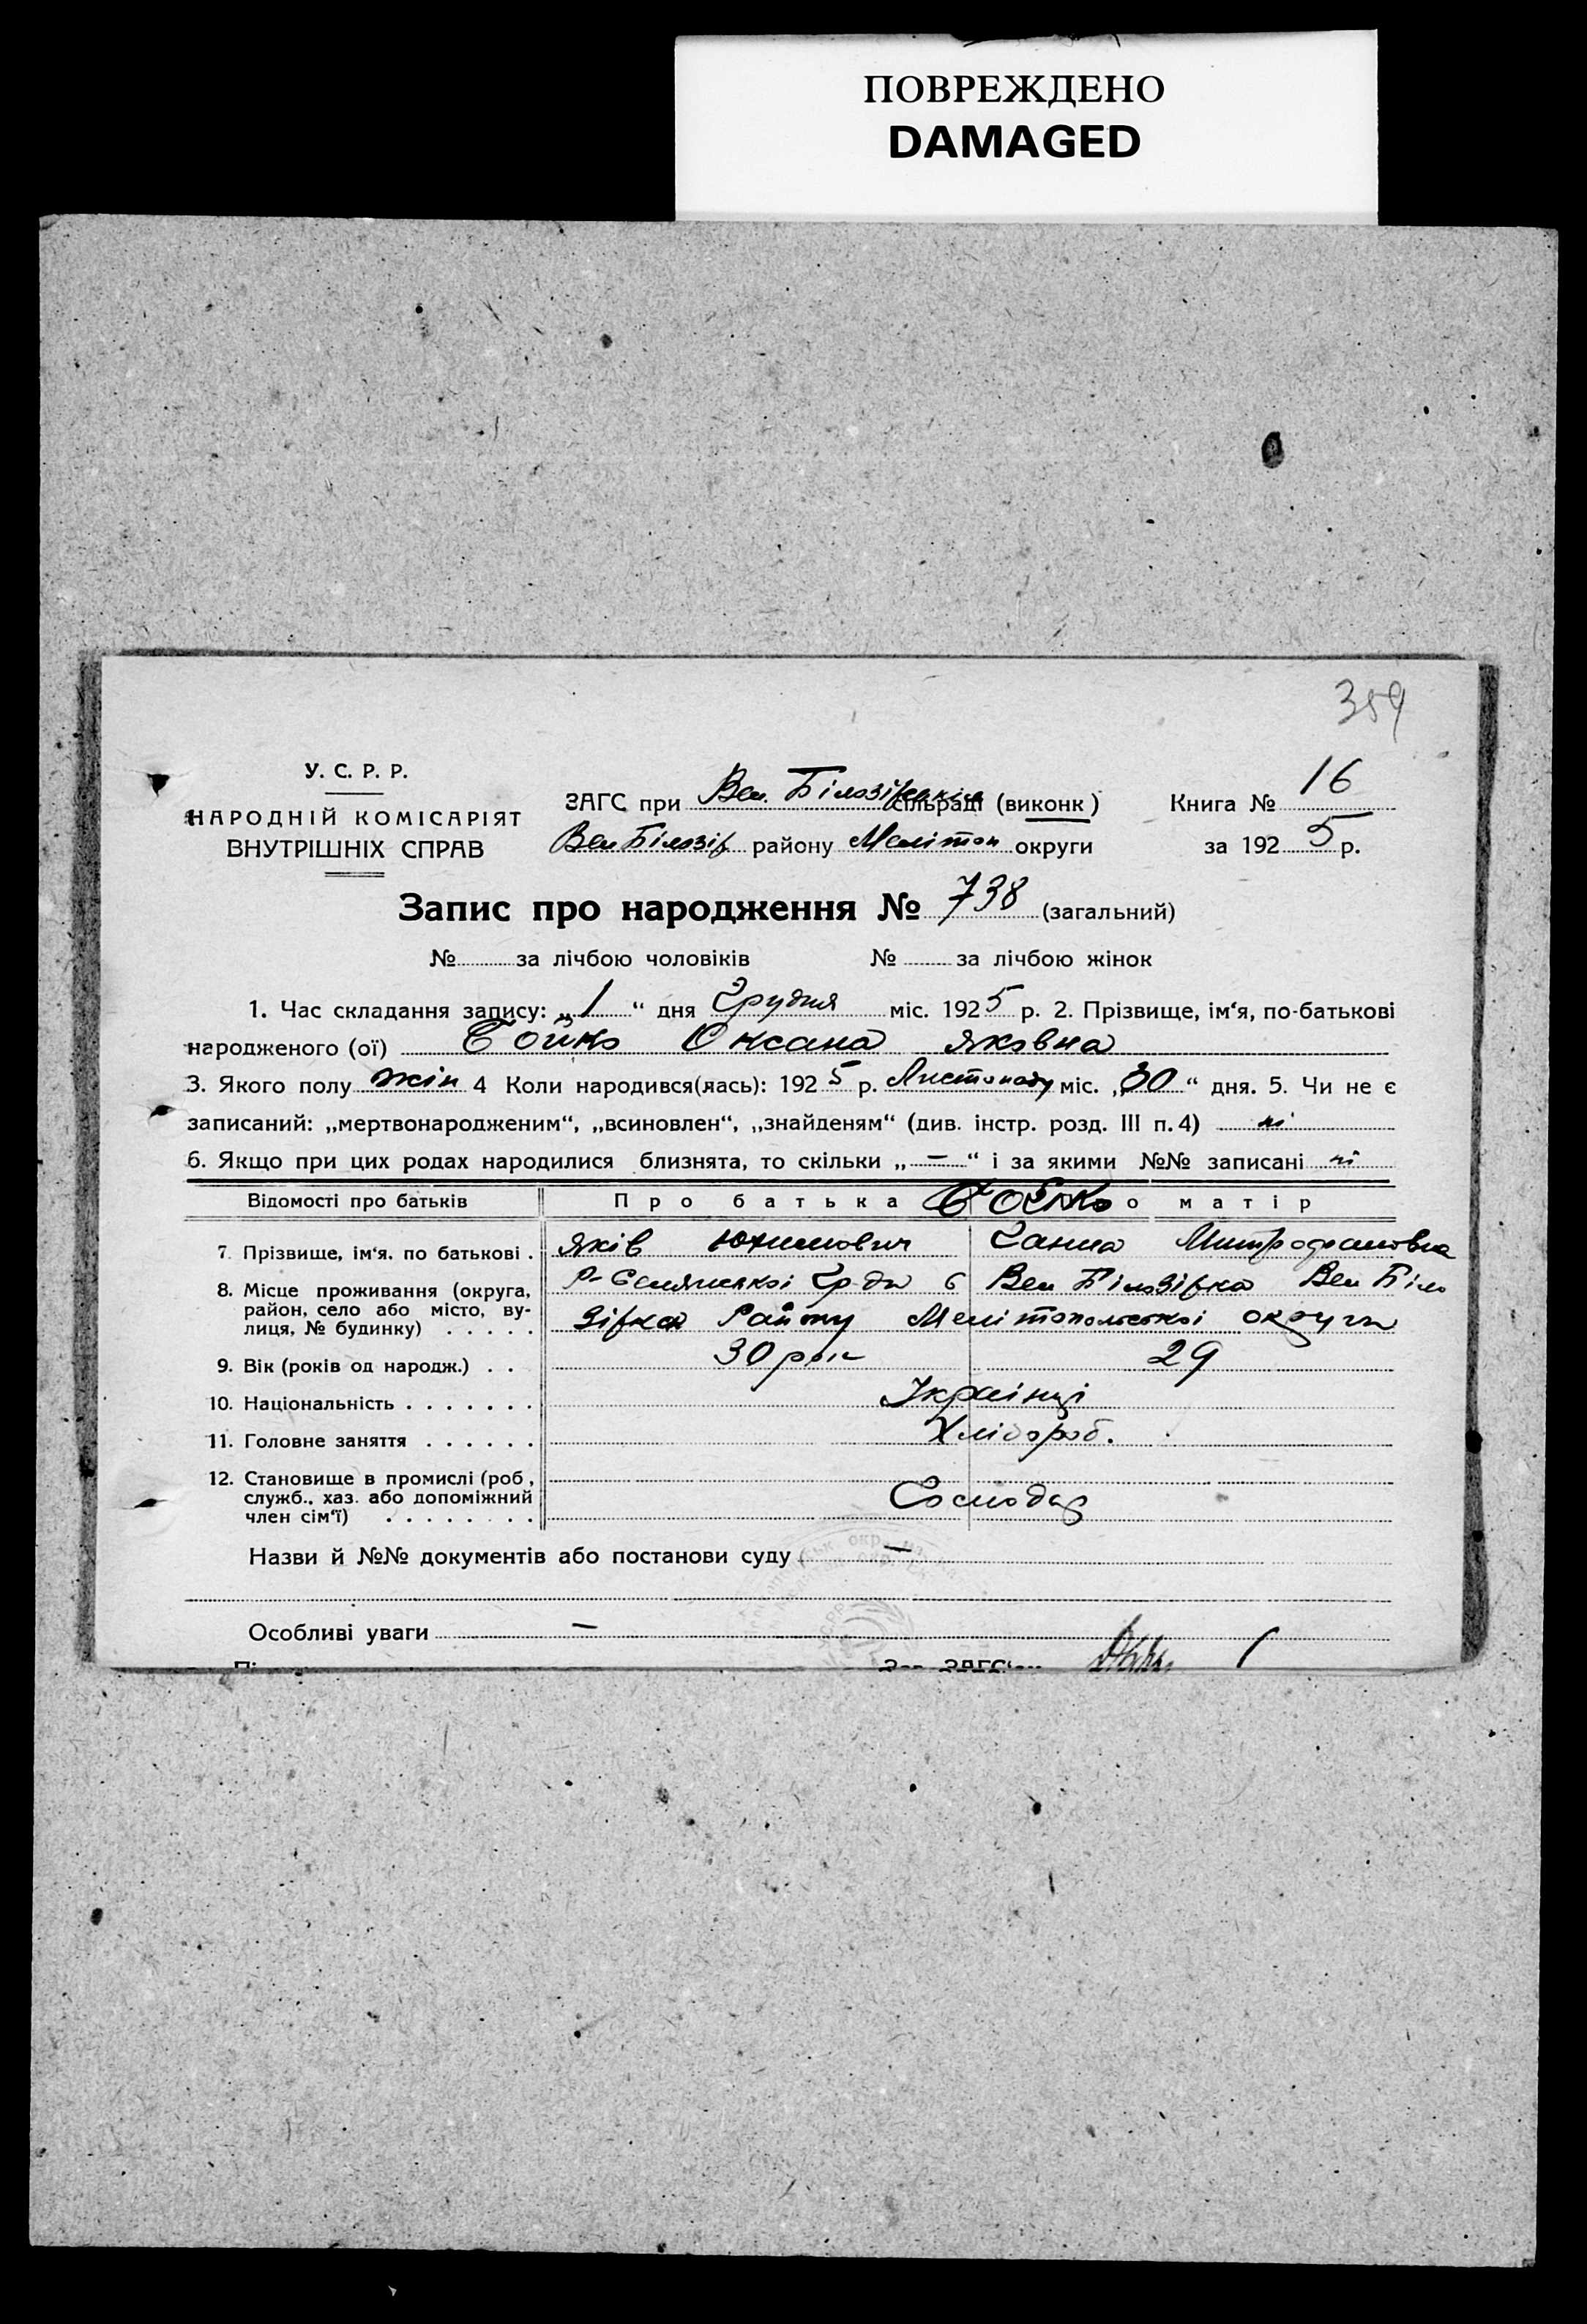 ПОВРЕЖДЕНО
DAMAGED
359
У. С. Р. Р.
НАРОДНІЙ КОМІСАРІЯТ
ВНУТРІШНІХ СПРАВ
ЗАГС при Вел. Білозірській сільраді (виконк)
Вел Білозір району Меліт�оп округи
Книга № 16
за 1925 р.
Запис про народження № 738 (загальний)
№ за лічбою чоловіків № за лічбою жінок
1. Час складання запису: „1“ дня Грудня міс. 1925 р. 2. Прізвище, ім‘я, по-батькові
народженого (ої) Бойко Оксана Яковна
3. Якого полу жін 4 Коли народився(лась): 1925 р. Листопаду міс. „30“ дня. 5. Чи не є
записаний: „мертвонародженим“, „всиновлен“, „знайденям“ (див. інстр. розд. III п. 4) ні
6. Якщо при цих родах народилися близнята, то скільки „—“ і за якими №№ записані ні
Відомості про батьків Про батька Бойко о матір
7. Прізвище, ім‘я. по батькові . Яків Юхимович Ганна Митрофановна
8. Місце проживання (округа, район, село або місто, вулиця, № будинку) . . . . . Р-Селянської Гр-ди б Вел Білозірка Вел Біло
зірка Району Мелітопольської округи
9. Вік (років од народж.) . . 30 рок 29
10. Національність . . . . . . . Українці
11. Головне заняття . . . . . . Хлібороб.
12. Становище в промислі (роб, служб., хаз. або допоміжний член сім‘ї) . . . . . . . . Господар
Назви й №№ документів або постанови суду —
Особливі уваги —
Зав. ЗАГС‘ом